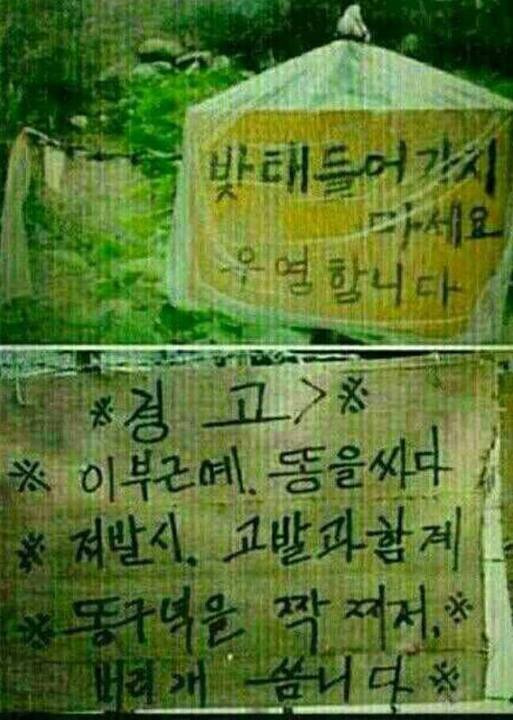 밧태들어가시
마세요
우영합니다
※경고>※
※ 이부근에. 똥을싸다
※ 저발시. 고발과함게
※ 똥구녁을 짝 찌저. ※
버리개 씀니다 ※